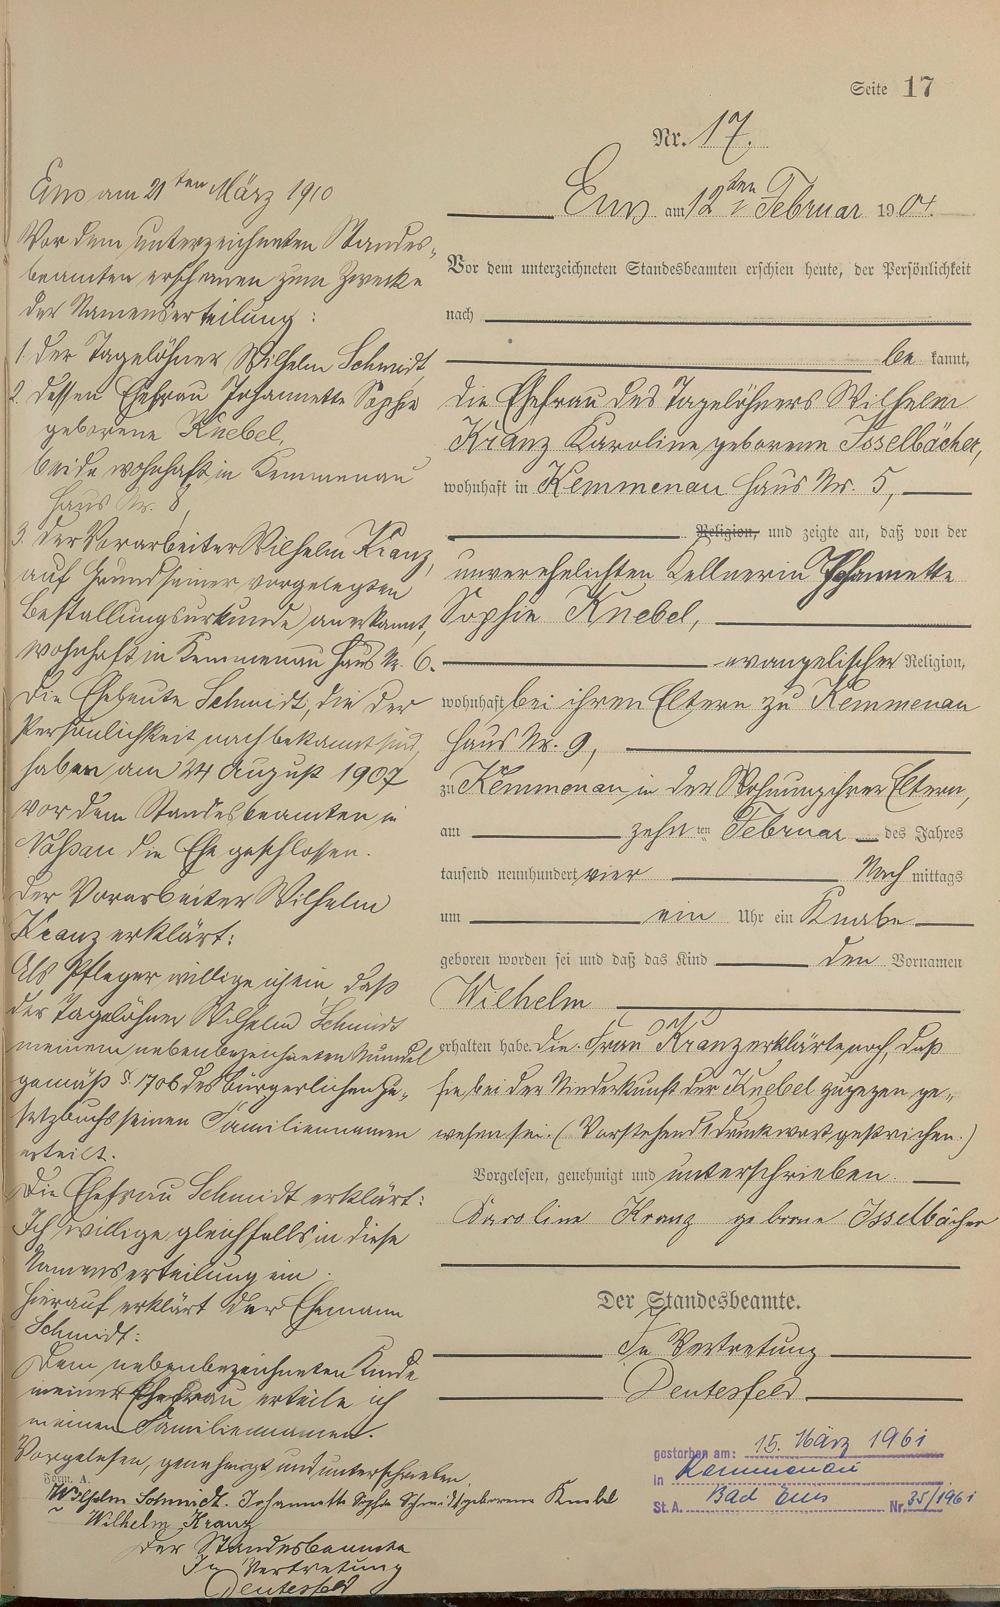 Seite 17
Nr. 17.
Ems am 12ten Februar 1904.
Vor dem unterzeichneten Standesbeamten erschien heute, der Persönlichkeit
nach
be kannt,
die Ehefrau des Tagelöhners Wilhelm
Kranz Karoline geborene Isselbächer,
wohnhaft in Kemmenau Haus Nr. 5,
Religion, und zeigte an, daß von der
unverehelichten Kellnerin Johannette
Sophie Knebel,
evangelischer Religion,
wohnhaft bei ihren Eltern zu Kemmenau
Haus Nr. 9,
zu Kemmenau in der Wohnung ihrer Eltern,
am zehn ten Februar des Jahres
tausend neunhundert vier Nach mittags
um ein Uhr ein Knabe
geboren worden sei und daß das Kind den Vornamen
Wilhelm
erhalten habe. Die Frau Kranz erklärte noch, daß
sie bei der Niederkunft der Knebel zugegen ge-
wesen sei. (Vorstehend 1 Druckwort gestrichen.)
Vorgelesen, genehmigt und unterschrieben.
Karoline Kranz geborne Isselbächer
Der Standesbeamte.
In Vertretung
Deutesfeld
Ems am 21ten März 1910
Vor dem unterzeichneten Standes-
beamten erschienen zum Zwecke
der Namenserteilung:
1. der Tagelöhner Wilhelm Schmidt,
2. dessen Ehefrau Johannette Sophie
geborene Knebel,
beide wohnhaft in Kemmenau
Haus Nr. 8,
3. der Vorarbeiter Wilhelm Kranz,
auf Grund seiner vorgelegten
Bestallungsurkunde anerkannt,
wohnhaft in Kemmenau Haus Nr. 6.
Die Eheleute Schmidt, die der
Persönlichkeit nach bekannt sind,
haben am 24 August 1907
vor dem Standesbeamten in
Naßau die Ehe geschlossen.
Der Vorarbeiter Wilhelm
Kranz erklärt:
Als Pfleger willige ich ein daß
der Tagelöhner Wilhelm Schmidt
meinem nebenbezeichneten Mündel
gemäß §. 1706 des Bürgerlichen Ge-
setzbuchs seinen Familiennamen
erteilt.
Die Ehefrau Schmidt erklärt:
Ich willige gleichfalls in diese
Namenserteilung ein.
Hierauf erklärt der Ehemann
Schmidt:
Dem nebenbezeichneten Kinde
meiner Ehefrau erteile ich
meinen Familiennamen.
Vorgelesen, genehmigt und unterschrieben.
Form. A.
Wilhelm Schmidt. Johannette Sophie Schmidt geborene Knebel
Wilhelm Kranz
Der Standesbeamte
In Vertretung
Deutesfeld
gestorben am: 15. März 1961
in Kemmenau
St. A. Bad Ems Nr. 35/1961